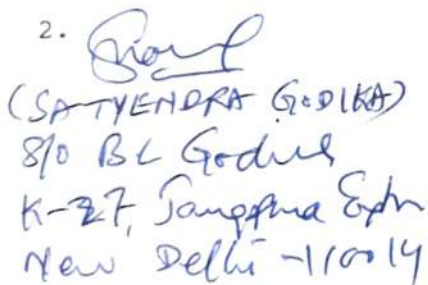 2.
(SATYENDRA GODIKA)
S/o BL Godika
K-27, Jangpura Extn
New Delhi -110014